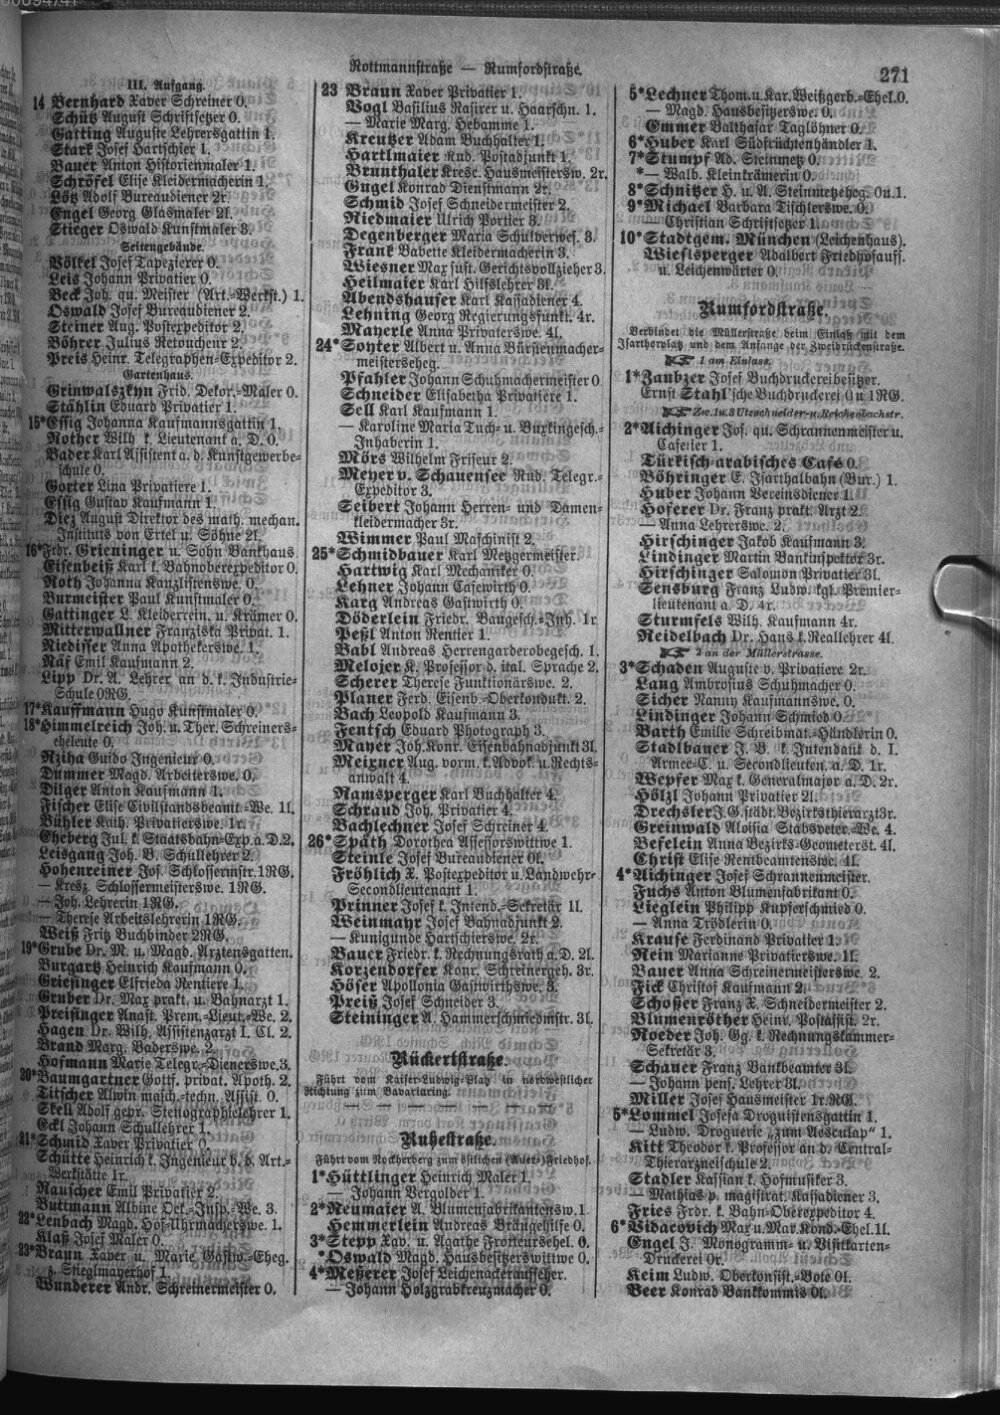 Rottmannstraße — Rumfordstraße.
271
III. Aufgang.
14 Bernhard Xaver Schreiner 0.
Schütz August Schriftsetzer 0.
Gatting Auguste Lehrersgattin 1.
Stark Josef Hartschier 1.
Bauer Anton Historienmaler 1.
Schröfel Elise Kleidermacherin 1.
Lötz Adolf Bureaudiener 2r.
Engel Georg Glasmaler 2l.
Stieger Oswald Kunstmaler 3.
Seitengebäude.
Völkel Josef Tapezierer 0.
Leis Johann Privatier 0.
Beck Joh. qu. Meister (Art.-Werkst.) 1.
Oswald Josef Bureaudiener 2.
Steiner Aug. Postexpeditor 2.
Böhrer Julius Retoucheur 2.
Preis Heinr. Telegraphen-Expeditor 2.
Gartenhaus.
Grinwalszkyn Frid. Dekor.-Maler 0.
Stählin Eduard Privatier 1.
15*Essig Johanna Kaufmannsgattin 1.
Rother Wilh. k. Lieutenant a. D. 0.
Bader Karl Assistent a. d. Kunstgewerbe-
schule 0.
Gorter Lina Privatiere 1.
Essig Gustav Kaufmann 1.
Diez August Direktor des math. mechan.
Instituts von Ertel u. Söhne 2l.
16*Frdr. Grieninger u. Sohn Bankhaus
Eisenbeiß Karl k. Bahnoberexpeditor 0.
Roth Johanna Kanzlistenswe. 0.
Burmeister Paul Kunstmaler 0.
Gattinger L. Kleiderrein. u. Krämer 0.
Mitterwallner Franziska Privat. 1.
Riedisser Anna Apothekerswe. 1.
Näf Emil Kaufmann 2.
Lipp Dr. A. Lehrer an d. k. Industrie-
Schule 0RG.
17*Kauffmann Hugo Kunstmaler 0.
18*Himmelreich Joh. u. Ther. Schreiners-
eheleute 0.
Rziha Guido Ingenieur 0.
Dummer Magd. Arbeiterswe. 0.
Dilger Anton Kaufmann 1.
Fischer Elise Civilstandsbeamt.-We. 1l.
Bühler Kath. Privatierswe. 1r.
Eheberg Jul. k. Staatsbahn-Exp. a. D. 2.
Leisgang Joh. B. Schullehrer 2.
Hohenreiner Jos. Schlossermstr. 1RG.
— Kresz. Schlossermeisterswe. 1RG.
— Joh. Lehrerin 1RG.
— Therese Arbeitslehrerin 1RG.
Weiß Fritz Buchbinder 2RG.
19*Grube Dr. M. u. Magd. Arztensgatten.
Burgartz Heinrich Kaufmann 0.
Griesinger Elfrieda Rentiere 1.
Gruber Dr. Max prakt. u. Bahnarzt 1.
Preisinger Anast. Prem.-Lieut.-We. 2.
Hagen Dr. Wilh. Assistenzarzt I. Cl. 2.
Brand Marg. Baderswe. 2.
Hofmann Marie Telegr.-Dienerswe. 3.
20*Baumgartner Gottf. privat. Apoth. 2.
Titscher Alwin masch.-techn. Assist. 0.
Skell Adolf gepr. Stenographielehrer 1.
Eckl Johann Schullehrer 1.
21*Schmid Xaver Privatier 0.
Schütte Heinrich k. Ingenieur b. d. Art.-
Werkstätte 1r.
Rauscher Emil Privatier 2.
Buttmann Albine Oek.-Insp.-We. 3.
22*Lenbach Magd. Hof-Uhrmacherswe. 1.
Klaß Josef Maler 0.
23*Braun Xaver u. Marie Gastw.-Eheg.
z. Stieglmayerhof 1.
Wunderer Andr. Schreinermeister 0.
23 Braun Xaver Privatier 1.
Vogl Basilius Rasirer u. Haarschn. 1.
— Marie Marg. Hebamme 1.
Kreutzer Adam Buchhalter 1.
Hartlmaier Rud. Postadjunkt 1.
Brunthaler Kresc. Hausmeistersw. 2r.
Gugel Konrad Dienstmann 2r.
Schmid Josef Schneidermeister 2.
Riedmaier Ulrich Portier 3.
Degenberger Maria Schulverwes. 3.
Frank Babette Kleidermacherin 3.
Wiesner Max sust. Gerichtsvollzieher 3.
Heilmaier Karl Hilfslehrer 3l.
Abendshauser Karl Kassadiener 4.
Lehning Georg Regierungsfunkt. 4r.
Mayerle Anna Privaterswe. 4l.
24*Soyter Albert u. Anna Bürstenmacher-
meisterseheg.
Pfahler Johann Schuhmachermeister 0
Schneider Elisabetha Privatiere 1.
Sell Karl Kaufmann 1.
— Karoline Maria Tuch- u. Buxkingesch.-
Inhaberin 1.
Mörs Wilhelm Friseur 2.
Meyer v. Schauensee Rud. Telegr.-
Expeditor 3.
Seibert Johann Herren- und Damen-
kleidermacher 3r.
Wimmer Paul Maschinist 2.
25*Schmidbauer Karl Metzgermeister.
Hartwig Karl Mechaniker 0.
Lehner Johann Cafewirth 0.
Karg Andreas Gastwirth 0.
Döderlein Friedr. Baugesch.-Inh. 1r
Peßl Anton Rentier 1.
Babl Andreas Herrengarderobegesch. 1.
Melojer K. Professor d. ital. Sprache 2.
Scherer Therese Funktionärswe. 2.
Planer Ferd. Eisenb.-Oberkondukt. 2.
Bach Leopold Kaufmann 3.
Fentsch Eduard Photograph 3.
Mayer Joh. Konr. Eisenbahnadjunkt 3l.
Meixner Aug. vorm. k. Advok. u. Rechts-
anwalt 4.
Ramsperger Karl Buchhalter 4.
Schraud Joh. Privatier 4.
Bachlechner Josef Schreiner 4.
26*Späth Dorothea Assessorswittwe 1.
Steinle Josef Bureaudiener 0l.
Fröhlich X. Postexpeditor u. Landwehr-
Secondlieutenant 1.
Prinner Josef k. Intend.-Sekretär 1l.
Weinmayr Josef Bahnadjunkt 2.
— Kunigunde Hartschierswe. 2r.
Bauer Friedr. k. Rechnungsrath a. D. 2l.
Korzendorfer Konr. Schreinergeh. 3r.
Höser Apollonia Gastwirthswe. 3.
Preiß Josef Schneider 3.
Steininger A. Hammerschmiedmstr. 3l.
Rückertstraße.
Führt vom Kaiser-Ludwig-Platz in nordwestlicher
Richtung zum Bavariaring.
— — — — — —
Ruhestraße.
Führt vom Rockherberg zum östlichen (Auer-)Friedhof.
1*Hüttlinger Heinrich Maler 1.
— Johann Vergolder 1.
2*Neumaier A. Blumenfabrikantensw. 1.
Hemmerlein Andreas Bräugehilfe 0.
3*Stepp Xav. u. Agathe Frotteursehel. 0.
*Oswald Magd. Hausbesitzerswittwe 0.
4*Meßerer Josef Leichenackeraufseher.
— Johann Holzgrabkreuzmacher 0.
5*Lechner Thom. u. Kar. Weißgerb.-Ehel. 0.
— Magd. Hausbesitzerswe. 0.
Emmer Balthasar Taglöhner 0.
6*Huber Karl Südfrüchtenhändler 1.
7*Stumpf Ad. Steinmetz 0.
*— Walb. Kleinkrämerin 0.
8*Schnitzer H. u. A. Steinmetzeheg. 0u.1.
9*Michael Barbara Tischlerswe. 0.
Christian Schriftsetzer 1.
10*Stadtgem. München (Leichenhaus).
Wieslsperger Adalbert Friedhofauss.
u. Leichenwärter 0.
Rumfordstraße.
Verbindet die Müllerstraße beim Einlaß mit dem
Isarthorplatz und dem Anfange der Zweibrückenstraße.
1 am Einlass.
1*Zaubzer Josef Buchdruckereibesitzer.
Ernst Stahl'sche Buchdruckerei 0 u 1RG.
Zw. 1 u. 3 Utzschneider- u. Reichenbachstr.
2*Aichinger Jos. qu. Schrannenmeister u.
Cafetier 1.
Türkisch-arabisches Café 0.
Böhringer E. Isarthalbahn (Bur.) 1.
Huber Johann Vereinsdiener 1.
Hoferer Dr. Franz prakt. Arzt 2.
— Anna Lehrerswe. 2.
Hirschinger Jakob Kaufmann 3.
Lindinger Martin Bankinspektor 3r.
Hirschinger Salomon Privatier 3l.
Sensburg Franz Ludw. kgl. Premier-
lieutenant a. D. 4r.
Sturmfels Wilh. Kaufmann 4r.
Reidelbach Dr. Hans k. Reallehrer 4l.
3 an der Müllerstrasse.
3*Schaden Auguste v. Privatiere 2r.
Lang Ambrosius Schuhmacher 0.
Sicher Nanny Kaufmannswe. 0.
Lindinger Johann Schmied 0.
Barth Emilie Schreibmat.-Händlerin 0.
Stadlbauer J. B. k. Intendant d. I.
Armee-C. u. Secondlieuten. a. D. 1r.
Wepfer Max k. Generalmajor a. D. 2r.
Hölzl Johann Privatier 2l.
Drechsler J. G. städt. Bezirksthierarzt 3r.
Greinwald Aloisia Stabsveter.-We. 4.
Vefelein Anna Bezirks-Geometerst. 4l.
Christ Elise Rentbeamtenswe. 4l.
4*Aichinger Josef Schrannenmeister.
Fuchs Anton Blumenfabrikant 0.
Lieglein Philipp Kupferschmied 0.
— Anna Trödlerin 0.
Krause Ferdinand Privatier 1.
Rein Marianne Privatierswe. 1l.
Bauer Anna Schreinermeisterswe. 2.
Fick Christof Kaufmann 2.
Schoßer Franz X. Schneidermeister 2.
Blumenröther Heinr. Postassist. 2r.
Roeder Joh. Gg. k. Rechnungskammer-
Sekretär 3.
Schauer Franz Bankbeamter 3l.
— Johann pens. Lehrer 3l.
Miller Josef Hausmeister 1r. RG.
5*Lommel Josefa Droguistensgattin 1.
— Ludw. Droguerie „zum Aesculap“ 1.
Kitt Theodor k. Professor an d. Central-
Thierarzneischule 2.
Stadler Kassian k. Hofmusiker 3.
— Mathias p. magistrat. Kassadiener 3.
Fries Frdr. k. Bahn-Oberexpeditor 4.
6*Vidacovich Max u. Mar. Kond.-Ehel. 1l.
Engel J. Monogramm- u. Visitkarten-
Druckerei 0r.
Keim Ludw. Oberkonsist.-Bote 0l.
Beer Konrad Bankkommis 0l.